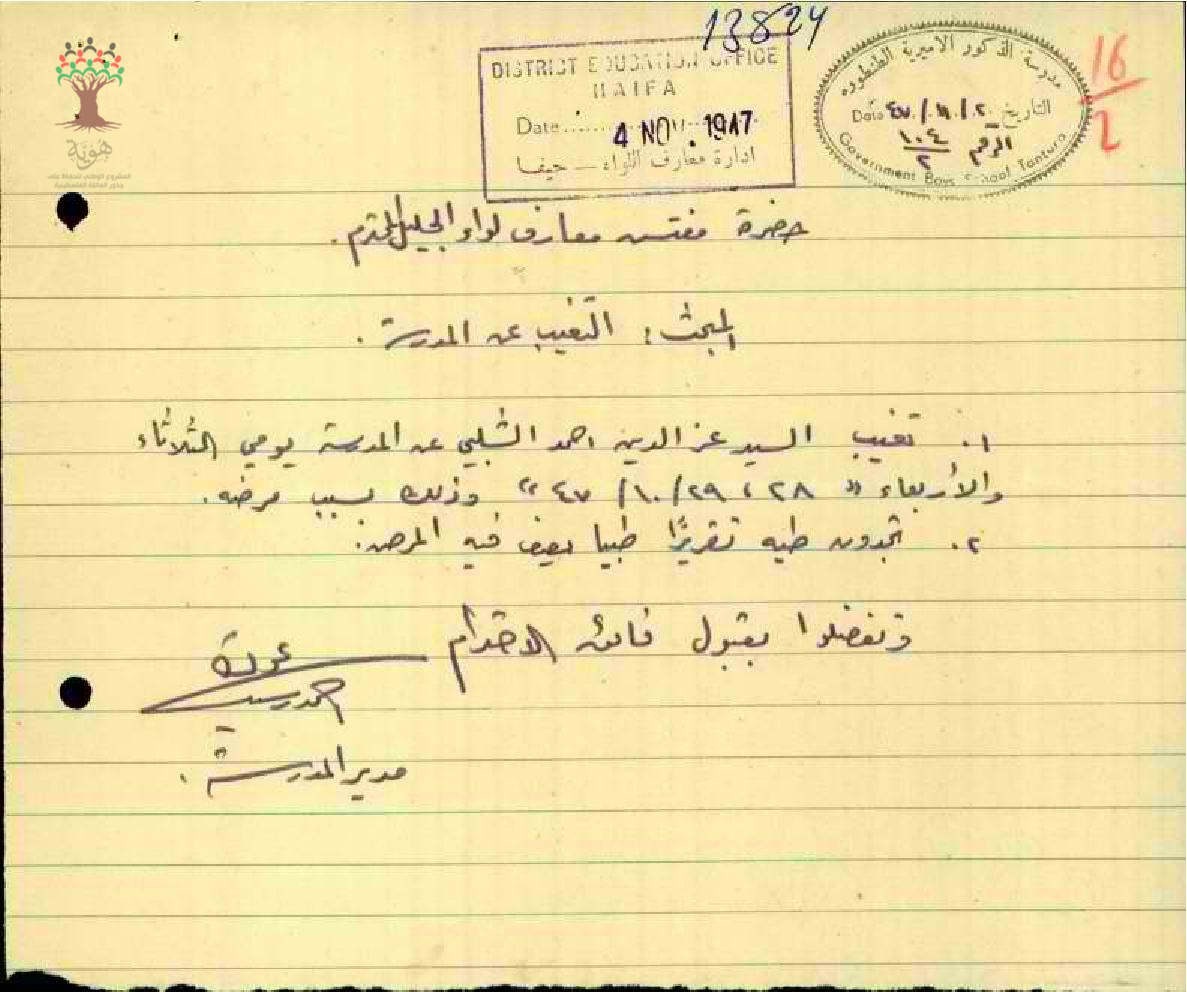 13824
DISTRICT EDUCATION OFFICE
HAIFA
Date 4 NOV. 1947
ادارة معارف اللواء — حيفا
مدرسة الذكور الاميرية الطنطوره
التاريخ ٢ / ١١ / ٤٧ Date
الرقم ١٠٤/٢
Government Boys School Tantura
16/2
هوية
المشروع الوطني للحفاظ على
جذور العائلة الفلسطينية
حضرة مفتش معارف لواء الجليل المحترم.
المبحث: التغيب عن المدرسة.
١. تغيب السيد عز الدين احمد الشلبي عن المدرسة يومي الثلاثاء
والأربعاء " ٢٨ ، ٢٩ / ١٠ / ٤٧ " وذلك بسبب مرضه.
٢. تجدون طيه تقريرًا طبيا يصف فيه المرض.
وتفضلوا بقبول فائق الاحترام
مدير المدرسة.